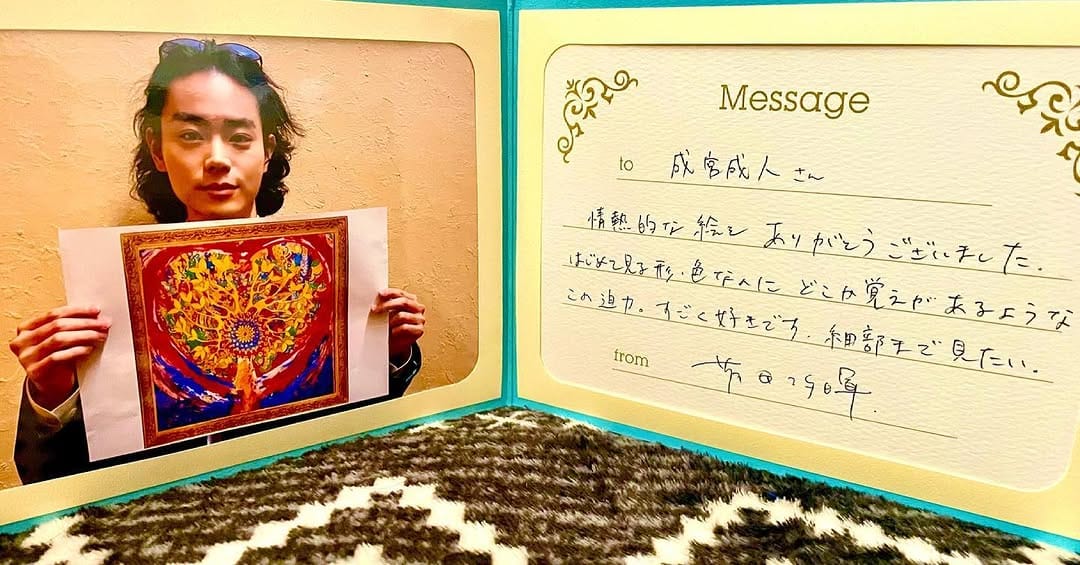 Message
to 成宮成人さん
情熱的な絵を ありがとうございました.
はじめて見る形・色なのに どこか覚えがあるような
この迫力。すごく好きです. 細部まで見たい.
from 菅田将暉.